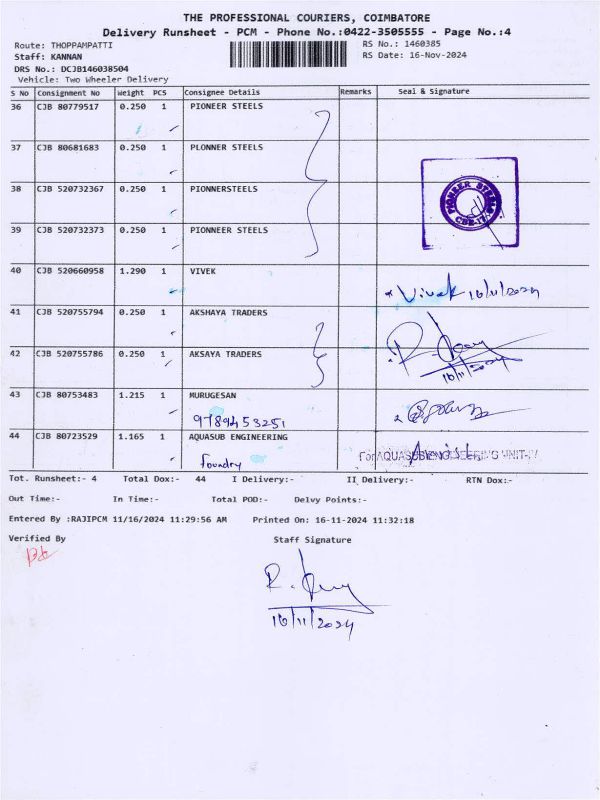 THE PROFESSIONAL COURIERS, COIMBATORE
Delivery Runsheet - PCM - Phone No.:0422-3505555 - Page No.:4
Route: THOPPAMPATTI RS No.: 1460385
Staff: KANNAN RS Date: 16-Nov-2024
DRS No.: DCJB146038504
Vehicle: Two Wheeler Delivery
S No Consignment No Weight PCS Consignee Details Remarks Seal & Signature
36 CJB 80779517 0.250 1 PIONEER STEELS
37 CJB 80681683 0.250 1 PLONNER STEELS
38 CJB 520732367 0.250 1 PIONNERSTEELS
PIONEER STEELS
39 CJB 520732373 0.250 1 PIONNEER STEELS
40 CJB 520660958 1.290 1 VIVEK
Vivek 16/11/2024
41 CJB 520755794 0.250 1 AKSHAYA TRADERS
42 CJB 520755786 0.250 1 AKSAYA TRADERS
16/11/2024
43 CJB 80753483 1.215 1 MURUGESAN
9789453251
44 CJB 80723529 1.165 1 AQUASUB ENGINEERING
Foundry For AQUASUB ENGINEERING UNIT-IV
Tot. Runsheet:- 4 Total Dox:- 44 I Delivery:- II Delivery:- RTN Dox:-
Out Time:- In Time:- Total POD:- Delvy Points:-
Entered By :RAJIPCM 11/16/2024 11:29:56 AM Printed On: 16-11-2024 11:32:18
Verified By Staff Signature
16/11/2024